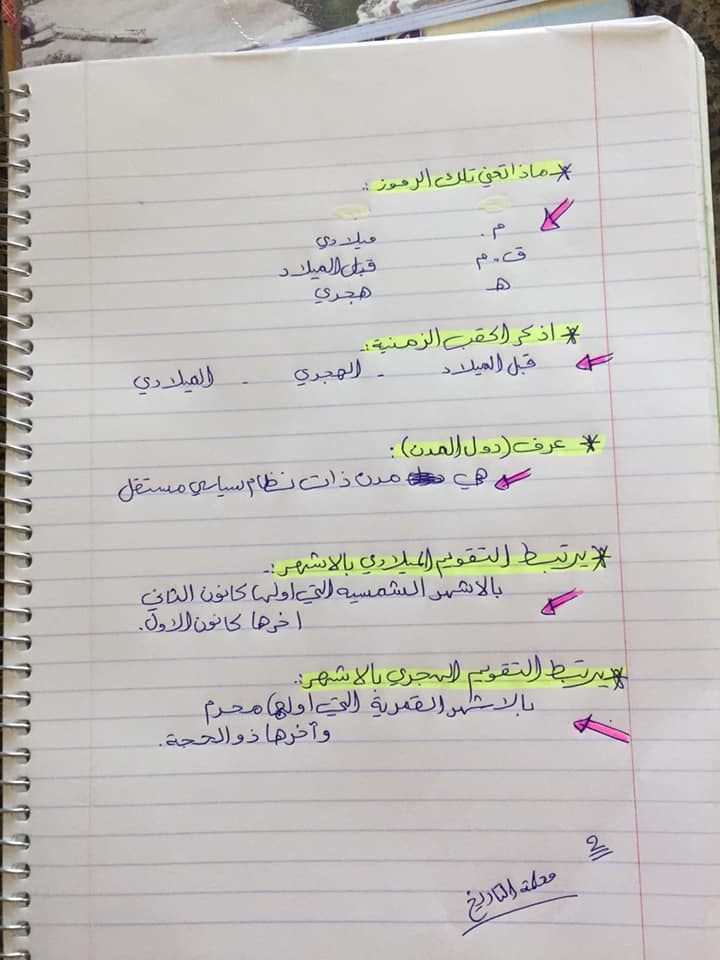 * ماذا تعني تلك الرموز :.
م. ميلادي
ق.م قبل الميلاد
هـ هجري
* اذكر الحقب الزمنية :.
قبل الميلاد - الهجري - الميلادي
* عرف (دول المدن) :
هي مدن ذات نظام سياسي مستقل
* يرتبط التقويم الميلادي بالاشهر :.
بالاشهر الشمسيه التي اولها كانون الثاني
اخرها كانون الاول.
* يرتبط التقويم الهجري بالاشهر :.
بالاشهر القمرية التي اولها محرم
وآخرها ذو الحجة.
2
معلمة التاريخ